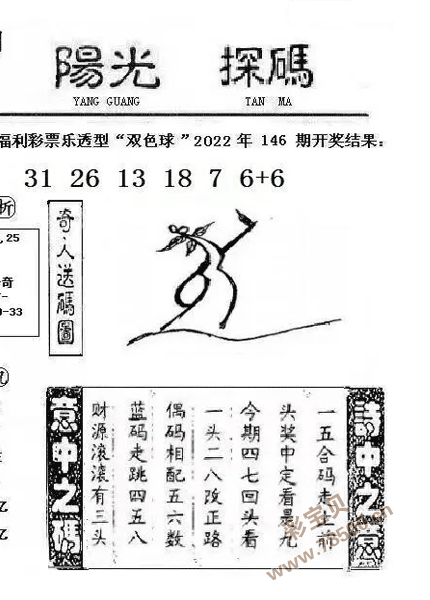 陽光 探碼
YANG GUANG TAN MA
福利彩票乐透型“双色球”2022年 146 期开奖结果:
31 26 13 18 7 6+6
析
,25
奇
-33
奇人送碼圖
詩中之意
一五合码走上前
头奖中定看是九
今期四七回头看
一头二八改正路
偶码相配五六数
蓝码走跳四五八
财源滚滚有三头
意中之碼
彩宝贝
www.78500.cn